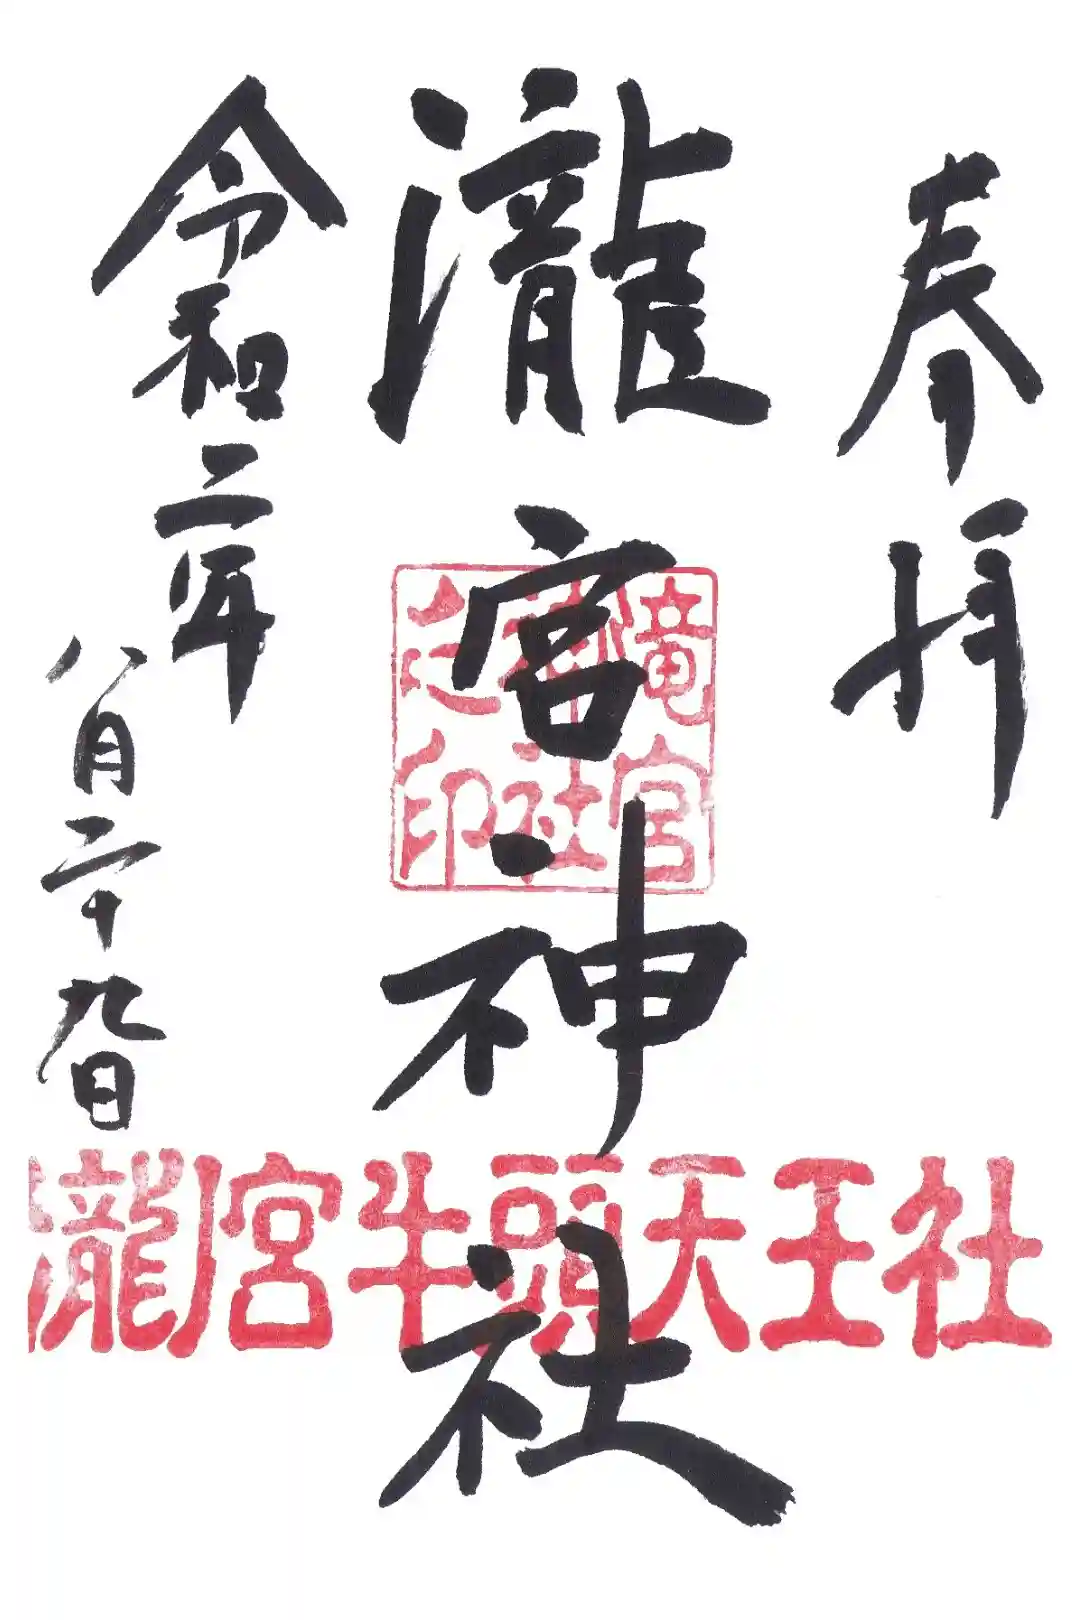 奉拝
瀧宮神社
滝宮
神社
之印
令和二年
八月二十九日
瀧宮牛頭天王社